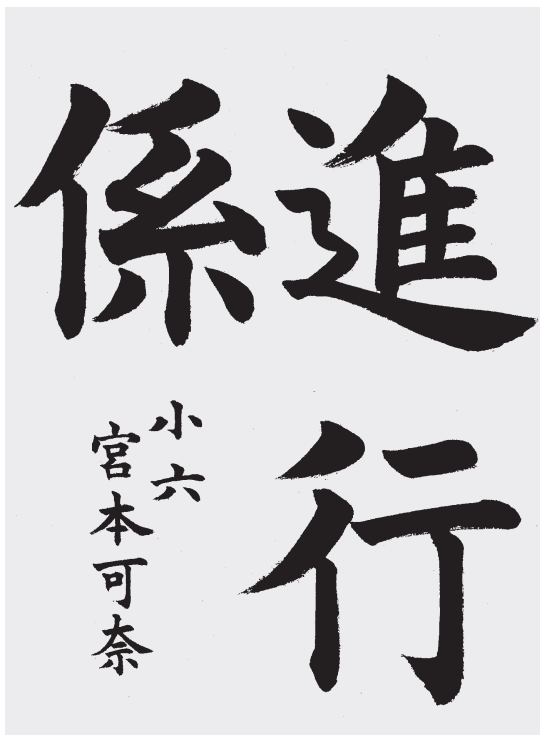 進行
係
小六
宮本可奈